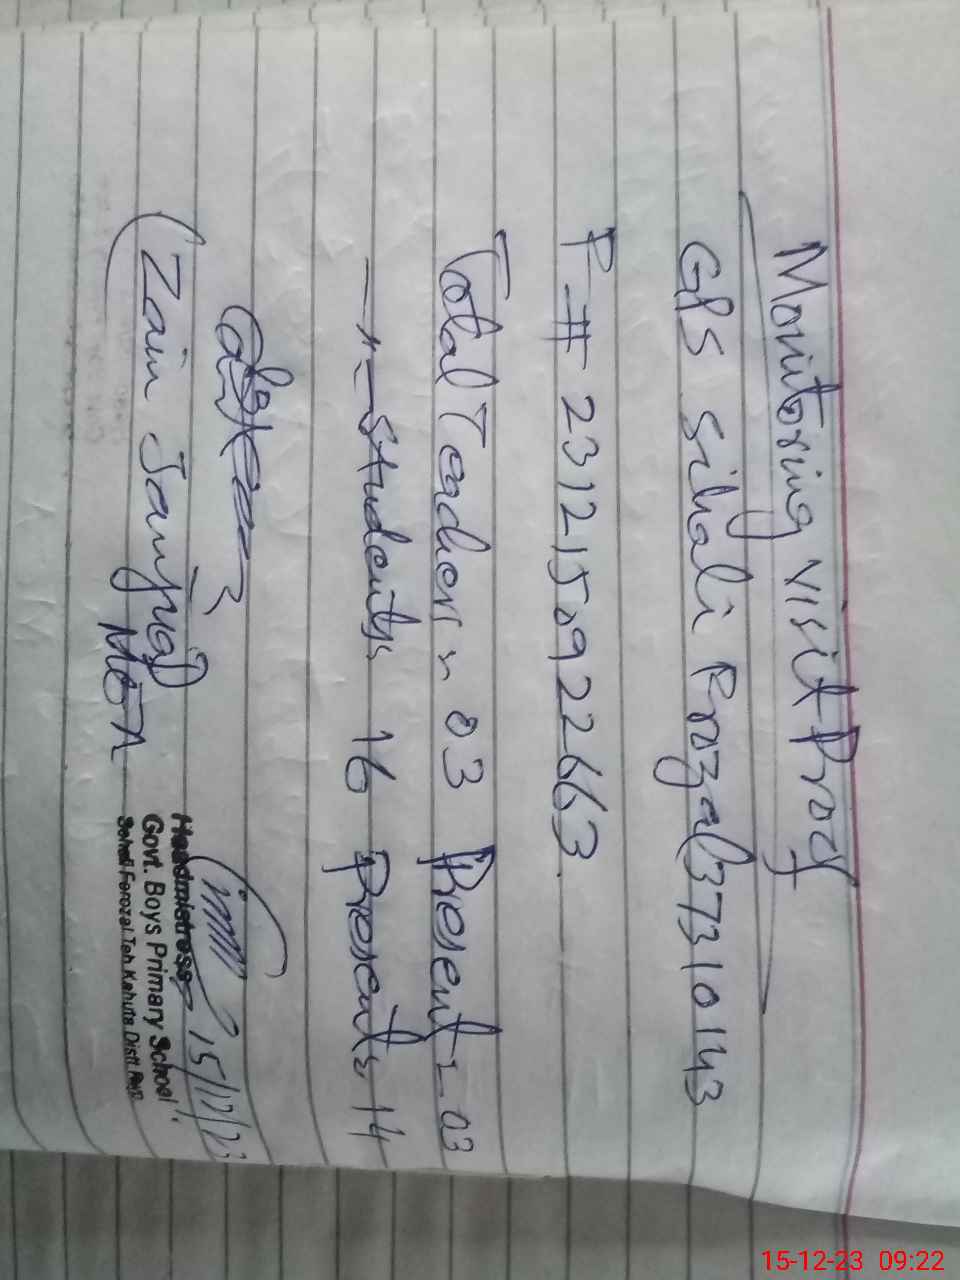 Monitoring visit Prof
GPS Sihali Frozal 37310143
P-# 2312150922663.
Total Teachers = 03 Present = 03
—"— Students 16 Present = 14
(Zain Sanjua)
MEA
15/12/23
Headmistress
Govt. Boys Primary School
Sehali Ferozal Teh Kahuta Distt Rwp
15-12-23 09:22